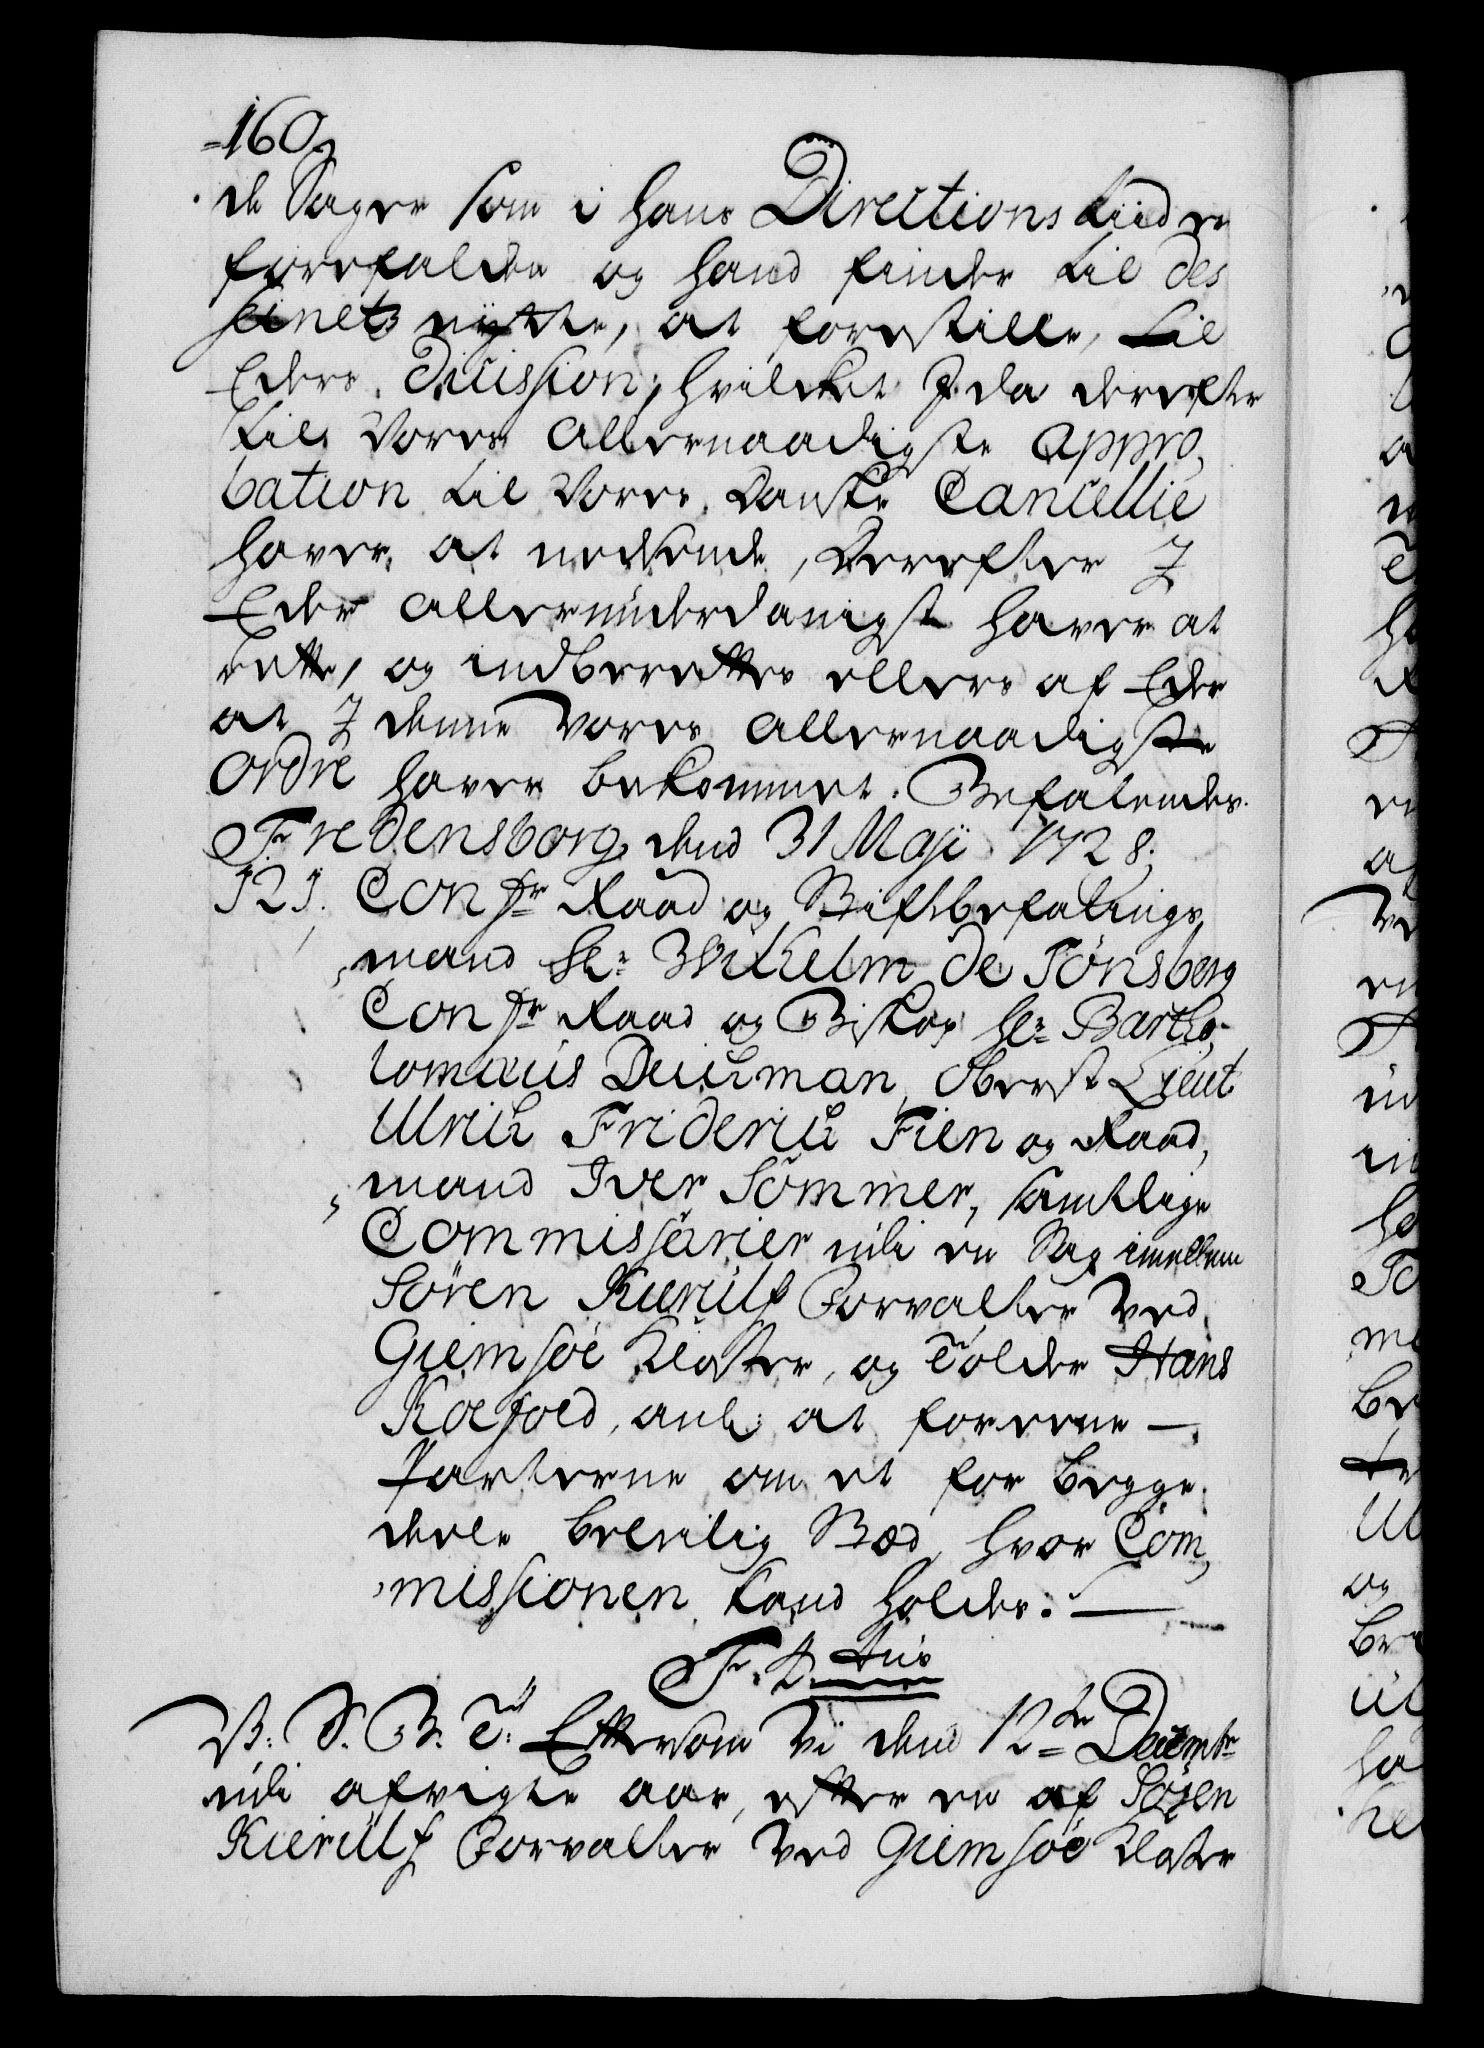 160,
de Sager som i hans Directions tiid er
forefalden og hand finder til des
seinets nøtte, at forestille, til
Eders Dicission, hvilcket I da derefter
til Vores Allernaadigste appro,
bation til Vores Danske Cancellie
haver at nedsende, Derefter I
Eder allerunderdanigst haver at
rette, og indberettes ellers af Eder
at I denne Vores Allernaadigste
Ordre haver bekommet. Befalendes.
Fredensborg dend 31 Maji 1728.
121. Confr Raad og Stiftbefalings,
mand Hr: Wilhelm de Tönsberg
Confr Raad og Biskop Hr: Bartho,
lomæus Deichman, Oberst Lieut
Ulrich Friderich Fien og Raad,
mand Iver Sommer, samtlige
Commissarier udi en Sag imellem
Sören Kierulf Forvalter ved
Giemsöe Kloster, og Tolder Hans
Koefoed, anl: at foreene
Parterne om et for begge
deele beleilig Stæd, hvor Com,
missionen kand holdes.
F. 4. tus
V. S. G. T. Eftersom Vi dend 12te Decembr
udi afvigte aar, efter en af Sören
Kierulf Forvalter ved Giemsöe Kloster